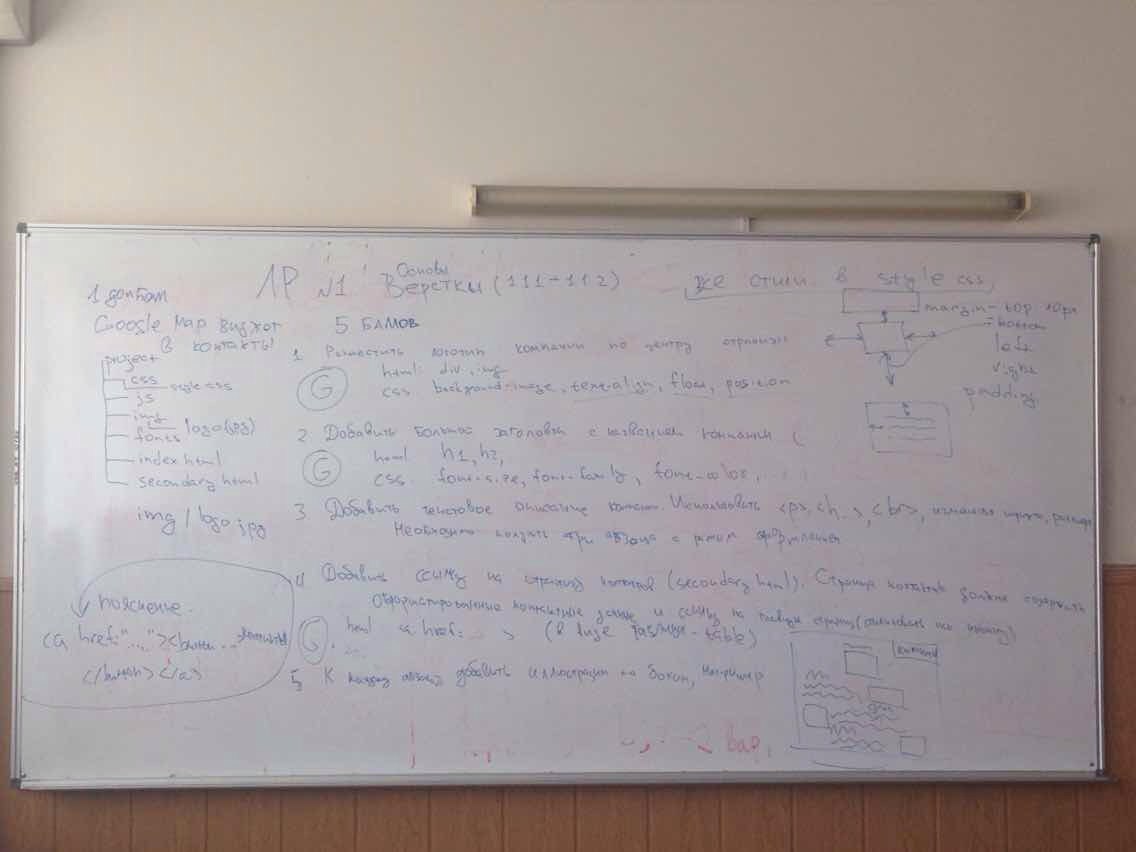 ЛР №1 Основы Верстки (111-112)
все стили в style css,
1 доп бал
Google Map виджет
в контакты
5 БАЛЛОВ
project
css
style css
js
img
logo (jpg)
fonts
index html
secondary html
img / logo jpg
1 Разместить логотип компании по центру страницы
html: div, img
G
css: background-image, text-align, float, position
2 Добавить большой заголовок с названием компании (
html h1, h2,
G
css: font-size, font-family, font-color, ...
3 Добавить текстовое описание Использовать <p>, <h..>, <br>,
Необходимо три абзаца с
4 Добавить ссылку на страницу контактов (secondary html). Страница контактов должна содержать
контактные данные и ссылку на главную страницу
G
html <a href= ... > (в виде таблицы - table)
5 К каждому абзацу добавить иллюстрации по бокам, например
пояснение.
<a href="...."><button ... контакты
</button></a>
margin-top 10px
-bottom
left
right
padding
контакты
вар.